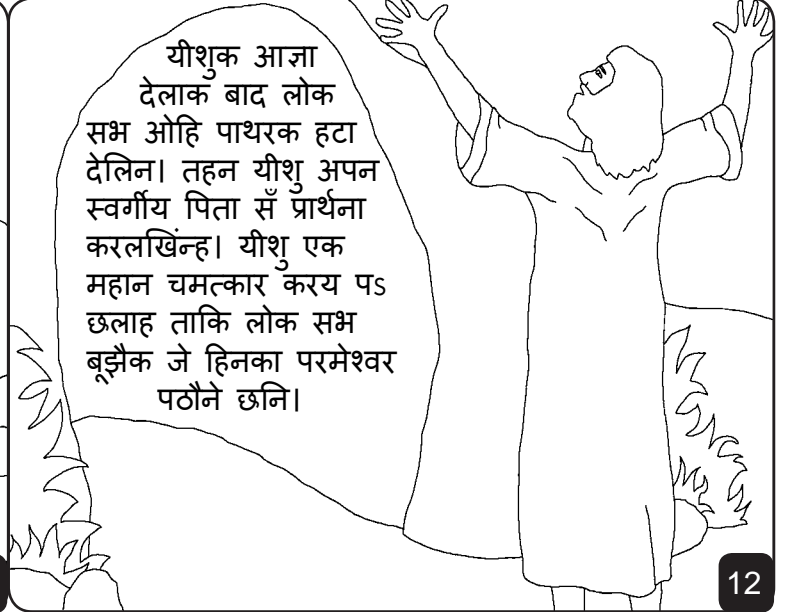 यीशुक आज्ञा
देलाक बाद लोक
सभ ओहि पाथरक हटा
देलिन। तहन यीशु अपन
स्वर्गीय पिता सँ प्रार्थना
करलखिंन्ह। यीशु एक
महान चमत्कार करय पs
छलाह ताकि लोक सभ
बूझैक जे हिनका परमेश्वर
पठौने छनि।
12